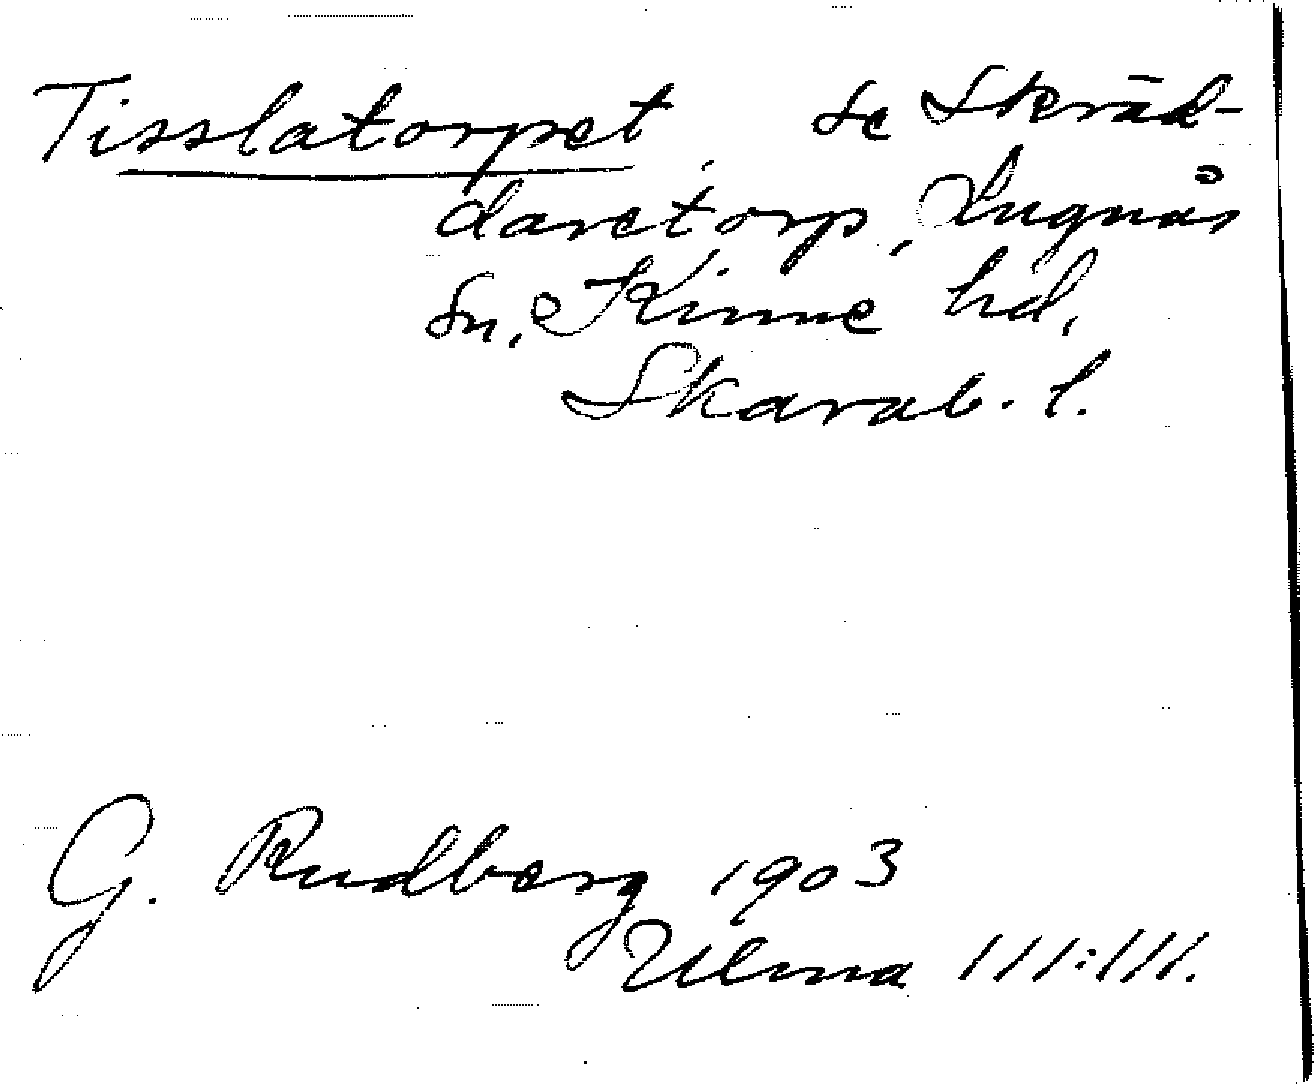 Tisslatorpet, se Skräd-
daretorp, Lugnås
sn, Kinne hd,
Skarab. l.
G. Rudberg 1903
Ulma 111:111.